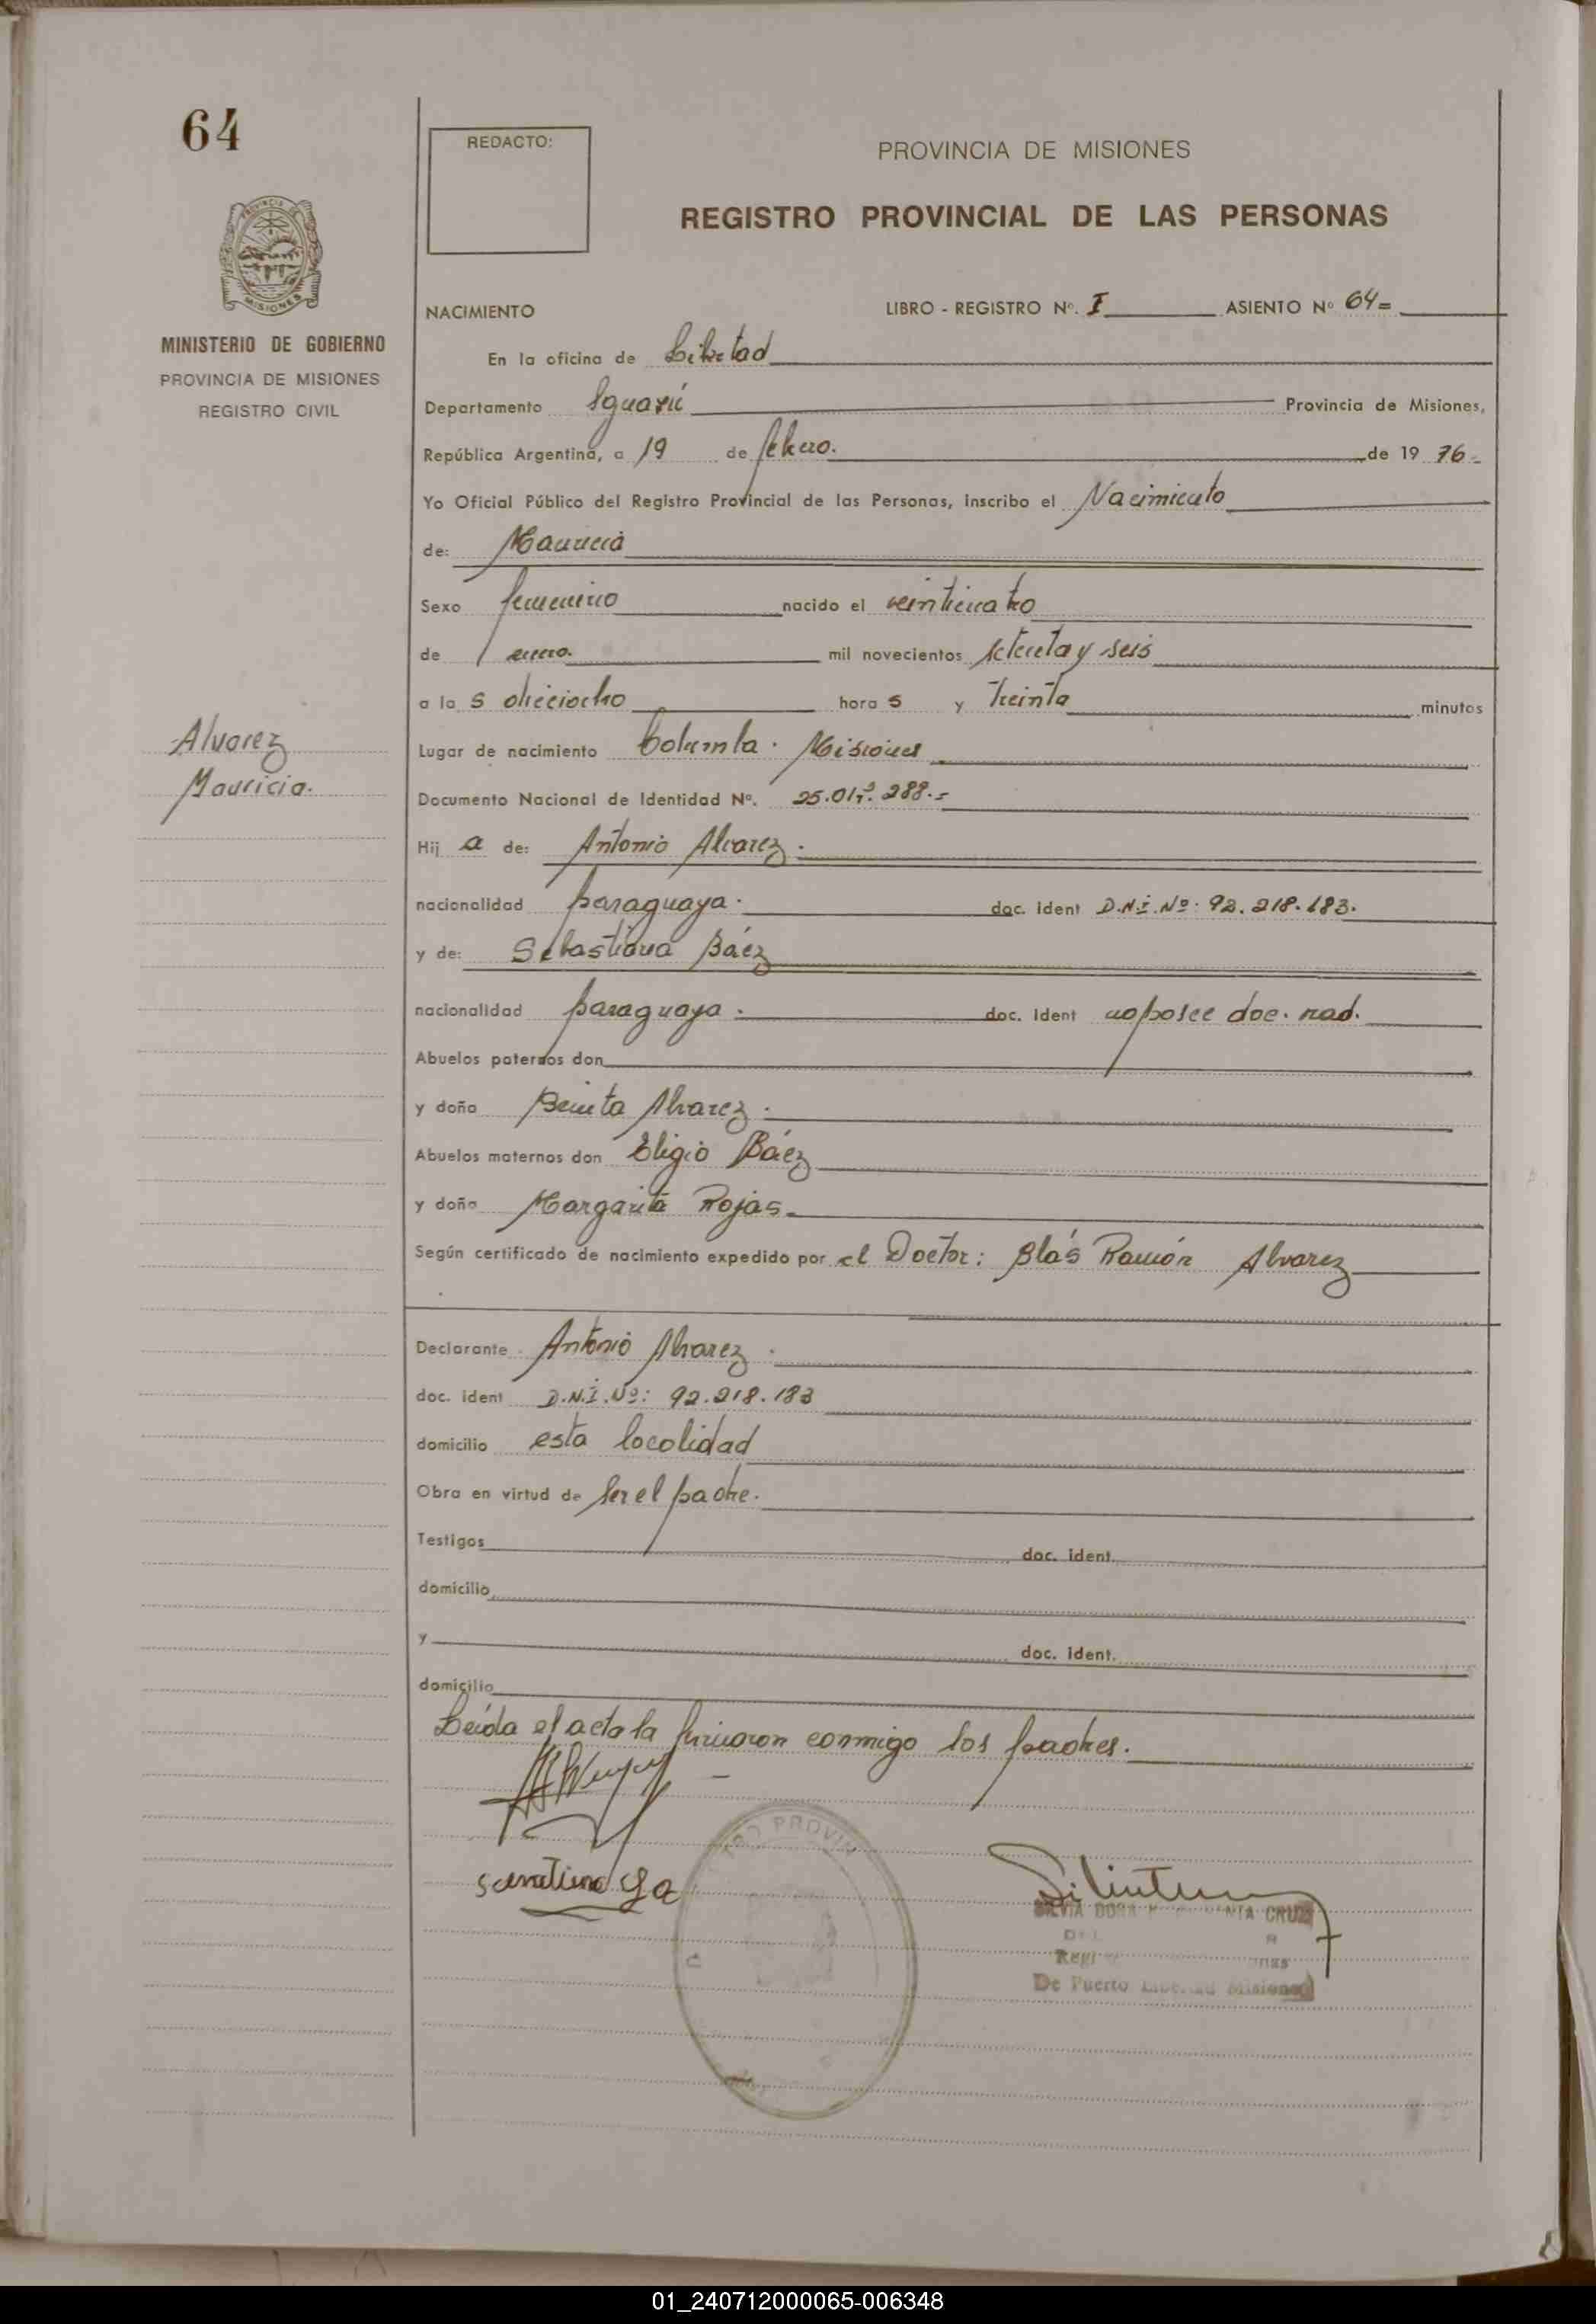 64
REDACTO:
PROVINCIA DE MISIONES
REGISTRO PROVINCIAL DE LAS PERSONAS
PROVINCIA DE
MISIONES
MINISTERIO DE GOBIERNO
PROVINCIA DE MISIONES
REGISTRO CIVIL
NACIMIENTO LIBRO - REGISTRO Nº. I ASIENTO Nº 64=
En la oficina de Libertad
Departamento Iguazú Provincia de Misiones,
República Argentina, a 19 de febrero. de 19 76.-
Yo Oficial Público del Registro Provincial de las Personas, inscribo el Nacimiento
de: Mauricia
Sexo femenino nacido el veinticuatro
de enero. mil novecientos setenta y seis
a la s dieciocho hora s y treinta minutos
Alvarez
Mauricia.
Lugar de nacimiento Misiones
Documento Nacional de Identidad Nº.
Hij a de: Antonio Alvarez.
nacionalidad paraguaya. doc. ident D.N.I. Nº: 92.218.183.
y de: Sebastiana Báez
nacionalidad paraguaya. doc. ident no posee doc. nad.
Abuelos paternos don
y doña Benita Alvarez.
Abuelos maternos don Eligio Báez
y doña Margarita Rojas.
Según certificado de nacimiento expedido por el Doctor: Blás Ramón Alvarez
Declarante Antonio Alvarez.
doc. ident D.N.I. Nº: 92.218.183
domicilio esta localidad
Obra en virtud de ser el padre.
Testigos doc. ident.
domicilio
y doc. ident.
domicilio
Leída el acta la firmaron conmigo los padres.
PROVIN
SILVIA DORA CRUZ
De Puerto Libertad Misiones
01_240712000065-006348